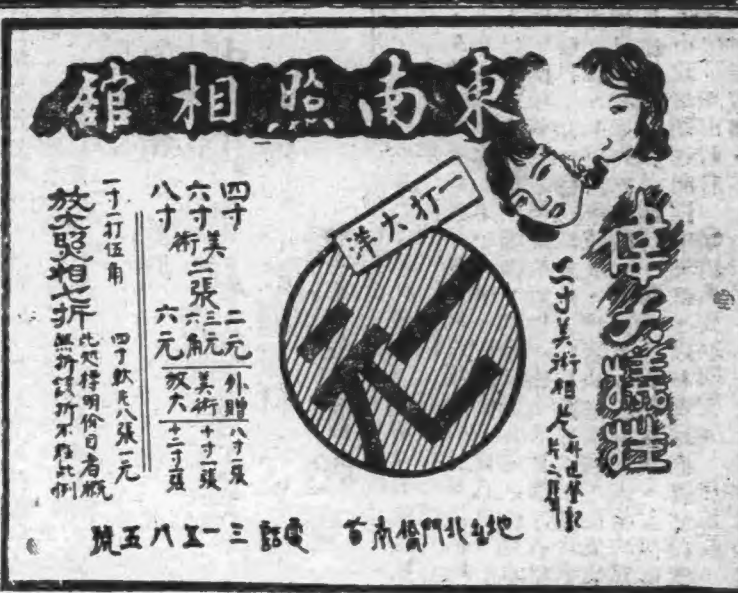 東南照相舘
偉大犧牲
二寸美術相片
一打大洋
一元
四寸
六寸美術二張
八寸
二元
三元六角
六元
外贈八寸一張
美術十寸一張
放大十二寸一張
一寸一打伍角
四寸軟片八張一元
放大照相七折
此処標明價目者概
無折談折不在此例
地址北門橋南首
電話三一五八五號